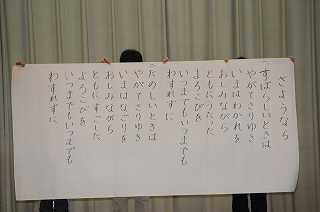 さようなら
一すばらしいときは
やがてさりゆき
いまはわかれを
おしみながら
ともにうたった
よろこびを
いつまでもいつまでも
わすれずに
二たのしいときは
やがてさりゆき
いまはなごりを
おしみながら
ともにすごした
よろこびを
いつまでもいつまでも
わすれずに